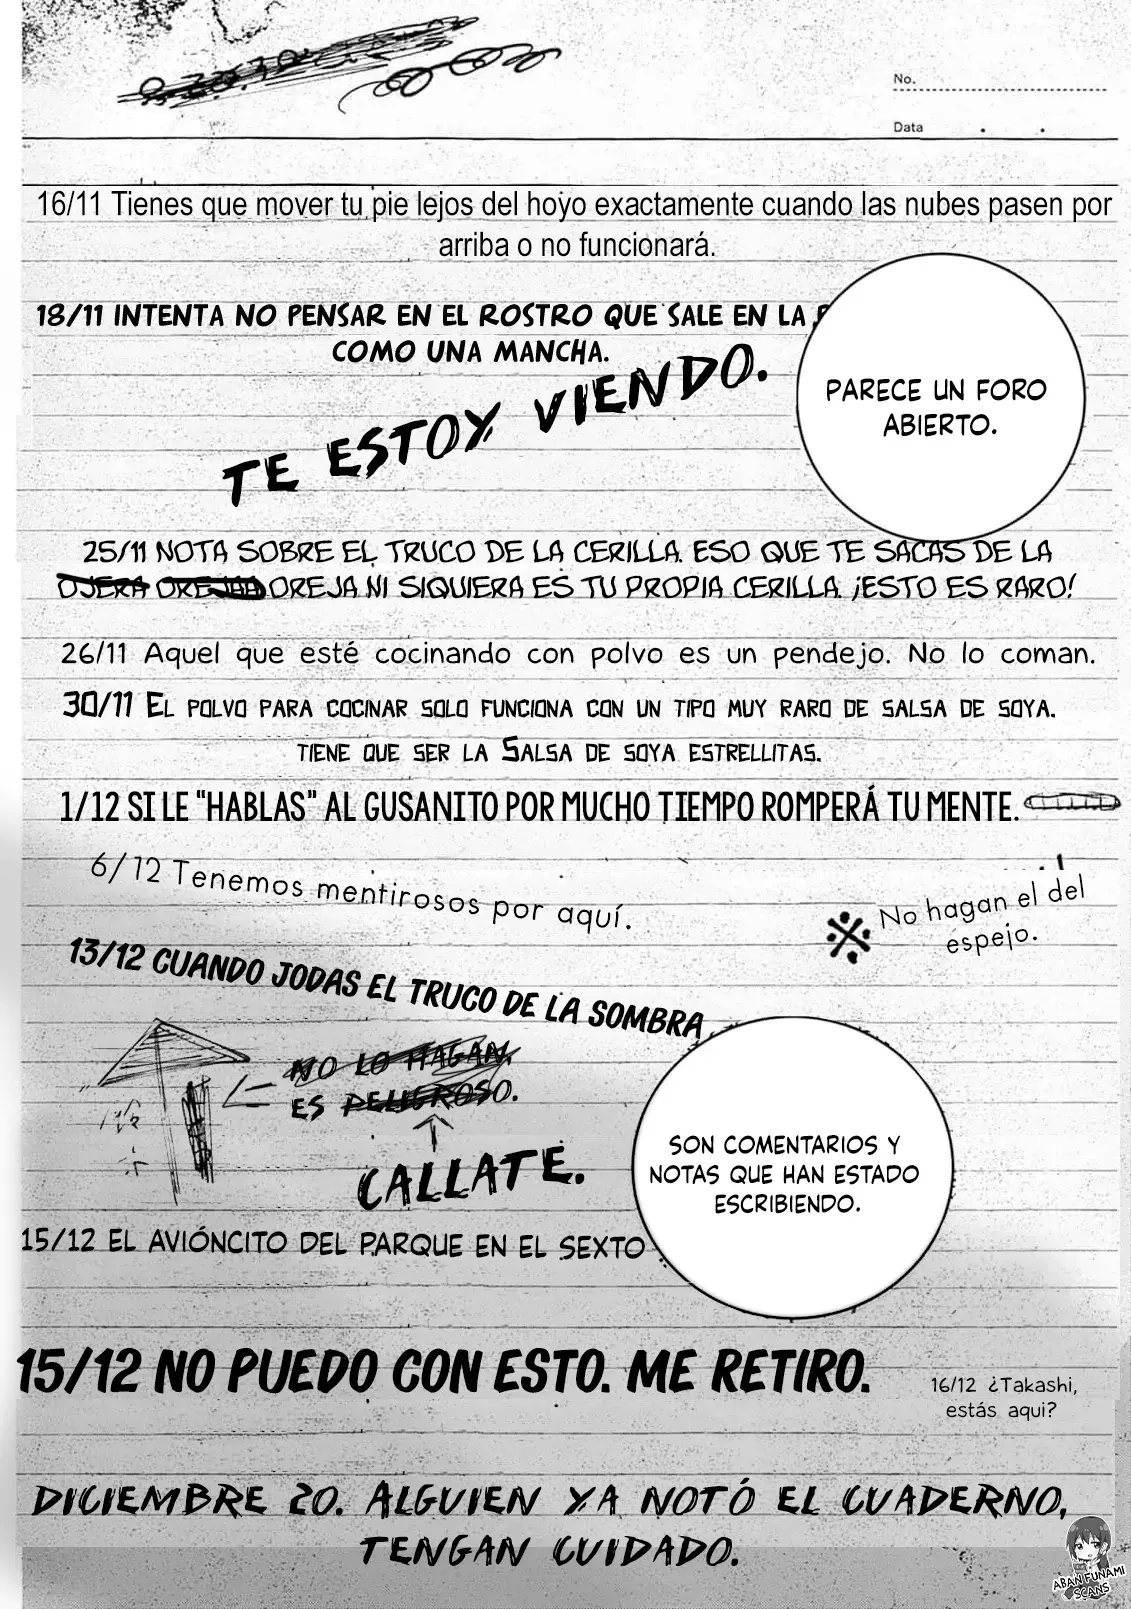 No.
Data
16/11 Tienes que mover tu pie lejos del hoyo exactamente cuando las nubes pasen por
arriba o no funcionará.
18/11 INTENTA NO PENSAR EN EL ROSTRO QUE SALE EN LA
COMO UNA MANCHA.
TE ESTOY VIENDO.
PARECE UN FORO
ABIERTO.
25/11 NOTA SOBRE EL TRUCO DE LA CERILLA. ESO QUE TE SACAS DE LA
OJERA OREJAA OREJA NI SIQUIERA ES TU PROPIA CERILLA. ¡ESTO ES RARO!
26/11 Aquel que esté cocinando con polvo es un pendejo. No lo coman.
30/11 EL POLVO PARA COCINAR SOLO FUNCIONA CON UN TIPO MUY RARO DE SALSA DE SOYA.
TIENE QUE SER LA SALSA DE SOYA ESTRELLITAS.
1/12 SI LE "HABLAS" AL GUSANITO POR MUCHO TIEMPO ROMPERÁ TU MENTE.
6/12 Tenemos mentirosos por aquí.
※ No hagan el del
espejo.
13/12 CUANDO JODAS EL TRUCO DE LA SOMBRA
NO LO HAGAN.
ES PELIGROSO.
CALLATE.
SON COMENTARIOS Y
NOTAS QUE HAN ESTADO
ESCRIBIENDO.
15/12 EL AVIÓNCITO DEL PARQUE EN EL SEXTO
15/12 NO PUEDO CON ESTO. ME RETIRO.
16/12 ¿Takashi,
estás aqui?
DICIEMBRE 20. ALGUIEN YA NOTÓ EL CUADERNO,
TENGAN CUIDADO.
ABAN FUNAMI
SCANS